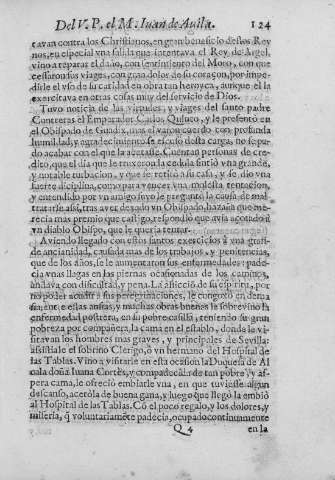 Del V. P. el M. Iuan de Auila. 124
tavan contra los Christianos, en gran beneficio destos Rey
nos, en especial vna salida que intentava el Rey de Argel,
vino a reparar el daño, con sentimiento del Moro, con que
cessaron sus viages, con gran dolor de su coraçon, por impe-
dirle el vso de su caridad en obra tan heroyca, aunque el la
exercitava en otras cosas muy del servicio de Dios.
Tuvo noticia de las virtudes, y viages del santo padre
Contreras el Emperador Carlos Quinto, y le presentó en
el Obispado de Guadix, mas el varon cuerdo con profunda
humildad, y agradecimiento se escusó desta carga, no se pu-
do acabar con el que la acetasse. Cuentan personas de cre-
dito, que el dia que le truxeron la cedula sintió vna grande,
y notable turbacion, y que se retiró a su casa, y se dio vna
fuerte diciplina, como para vencer vna molesta tentacion,
y entendido por vn amigo suyo le preguntó la causa de mal
tratarse assi, tras aver dexado vn Obispado, hazaña que me-
recia mas premio que castigo, respondió que avia açotado a
vn diablo Obispo, que le queria tentar.
Aviendo llegado con estos santos exercicios a vna gran-
de ancianidad, causada mas de los trabajos, y penitencias,
que de los años, se le aumentaron sus enfermedades: pade-
cia vnas llagas en las piernas ocasionadas de los caminos,
andava con dificultad, y pena. La aflicció de su espiritu, por
no poder acudir a sus peregrinaciones, le congoxó en dema
sia entre estas ansias, y muchas obras buenas le sobrevino la
enfermedad postrera, en su pobre casilla, teniendo su gran
pobreza por compañera, la cama en el establo, donde le vi-
sitavan los hombres mas graves, y principales de Sevilla:
assistiale el sobrino Clerigo, ò vn hermano del Hospital de
las Tablas. Vino a visitarle en esta ocasion la Duquesa de Al
cala doña Iuana Cortès, y compadecida de tan pobre, y as-
pera cama, le ofreció embiarle vna, en que tuviesse algun
descanso, acetóla de buena gana, y luego que llegó la embió
al Hospital de las Tablas. Có el poco regalo, y los dolores, y
miseria, q̃ voluntariamẽte padecia, ocupado continuamente
Q 4 en la